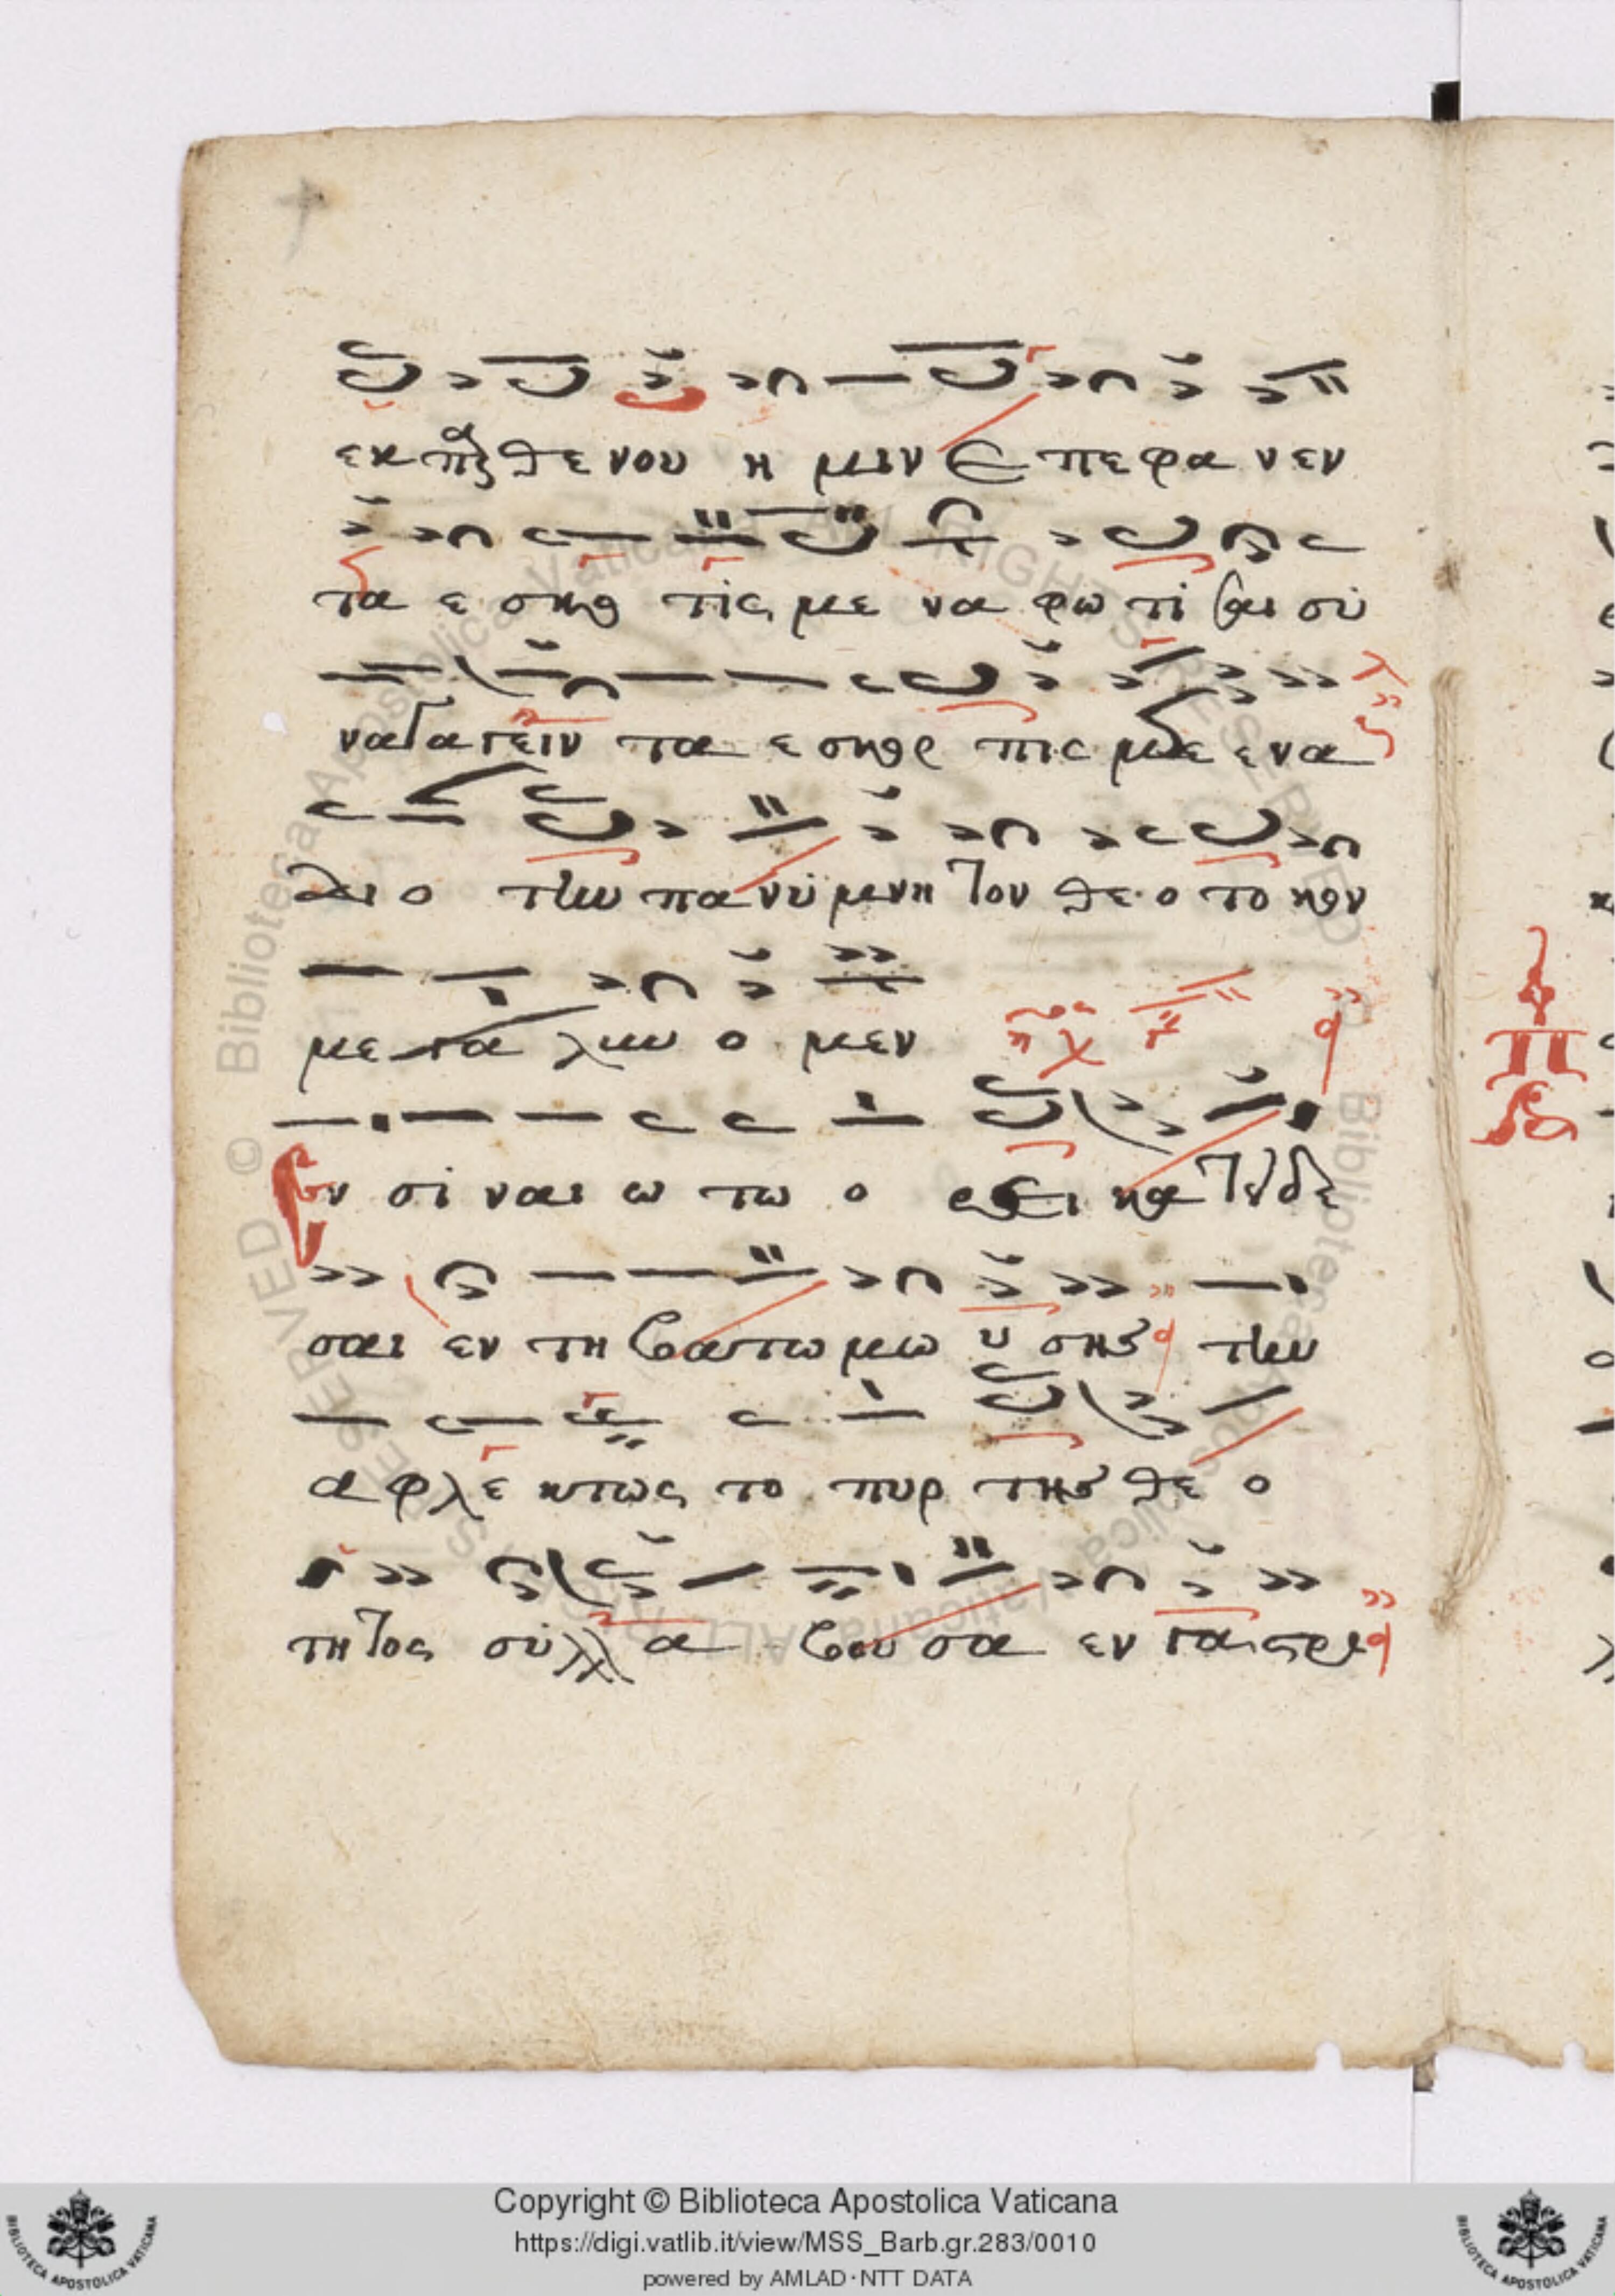 εκ παρθενου η μιν επεφανεν
τα εσκο τισμενα φωτισαι συ
ναγαγειν τα εσκορπισμε ενα
διο την πανυμνητον θεοτοκον
μεγαλυνομεν
Εν σιναιω τω ορει κατειδε
σαι εν τη βατω μωυσης την
αφλεκτως το πυρ της θεο
τητος συλλαβουσα εν γαστρι
Copyright © Biblioteca Apostolica Vaticana
https://digi.vatlib.it/view/MSS_Barb.gr.283/0010
powered by AMLAD·NTT DATA